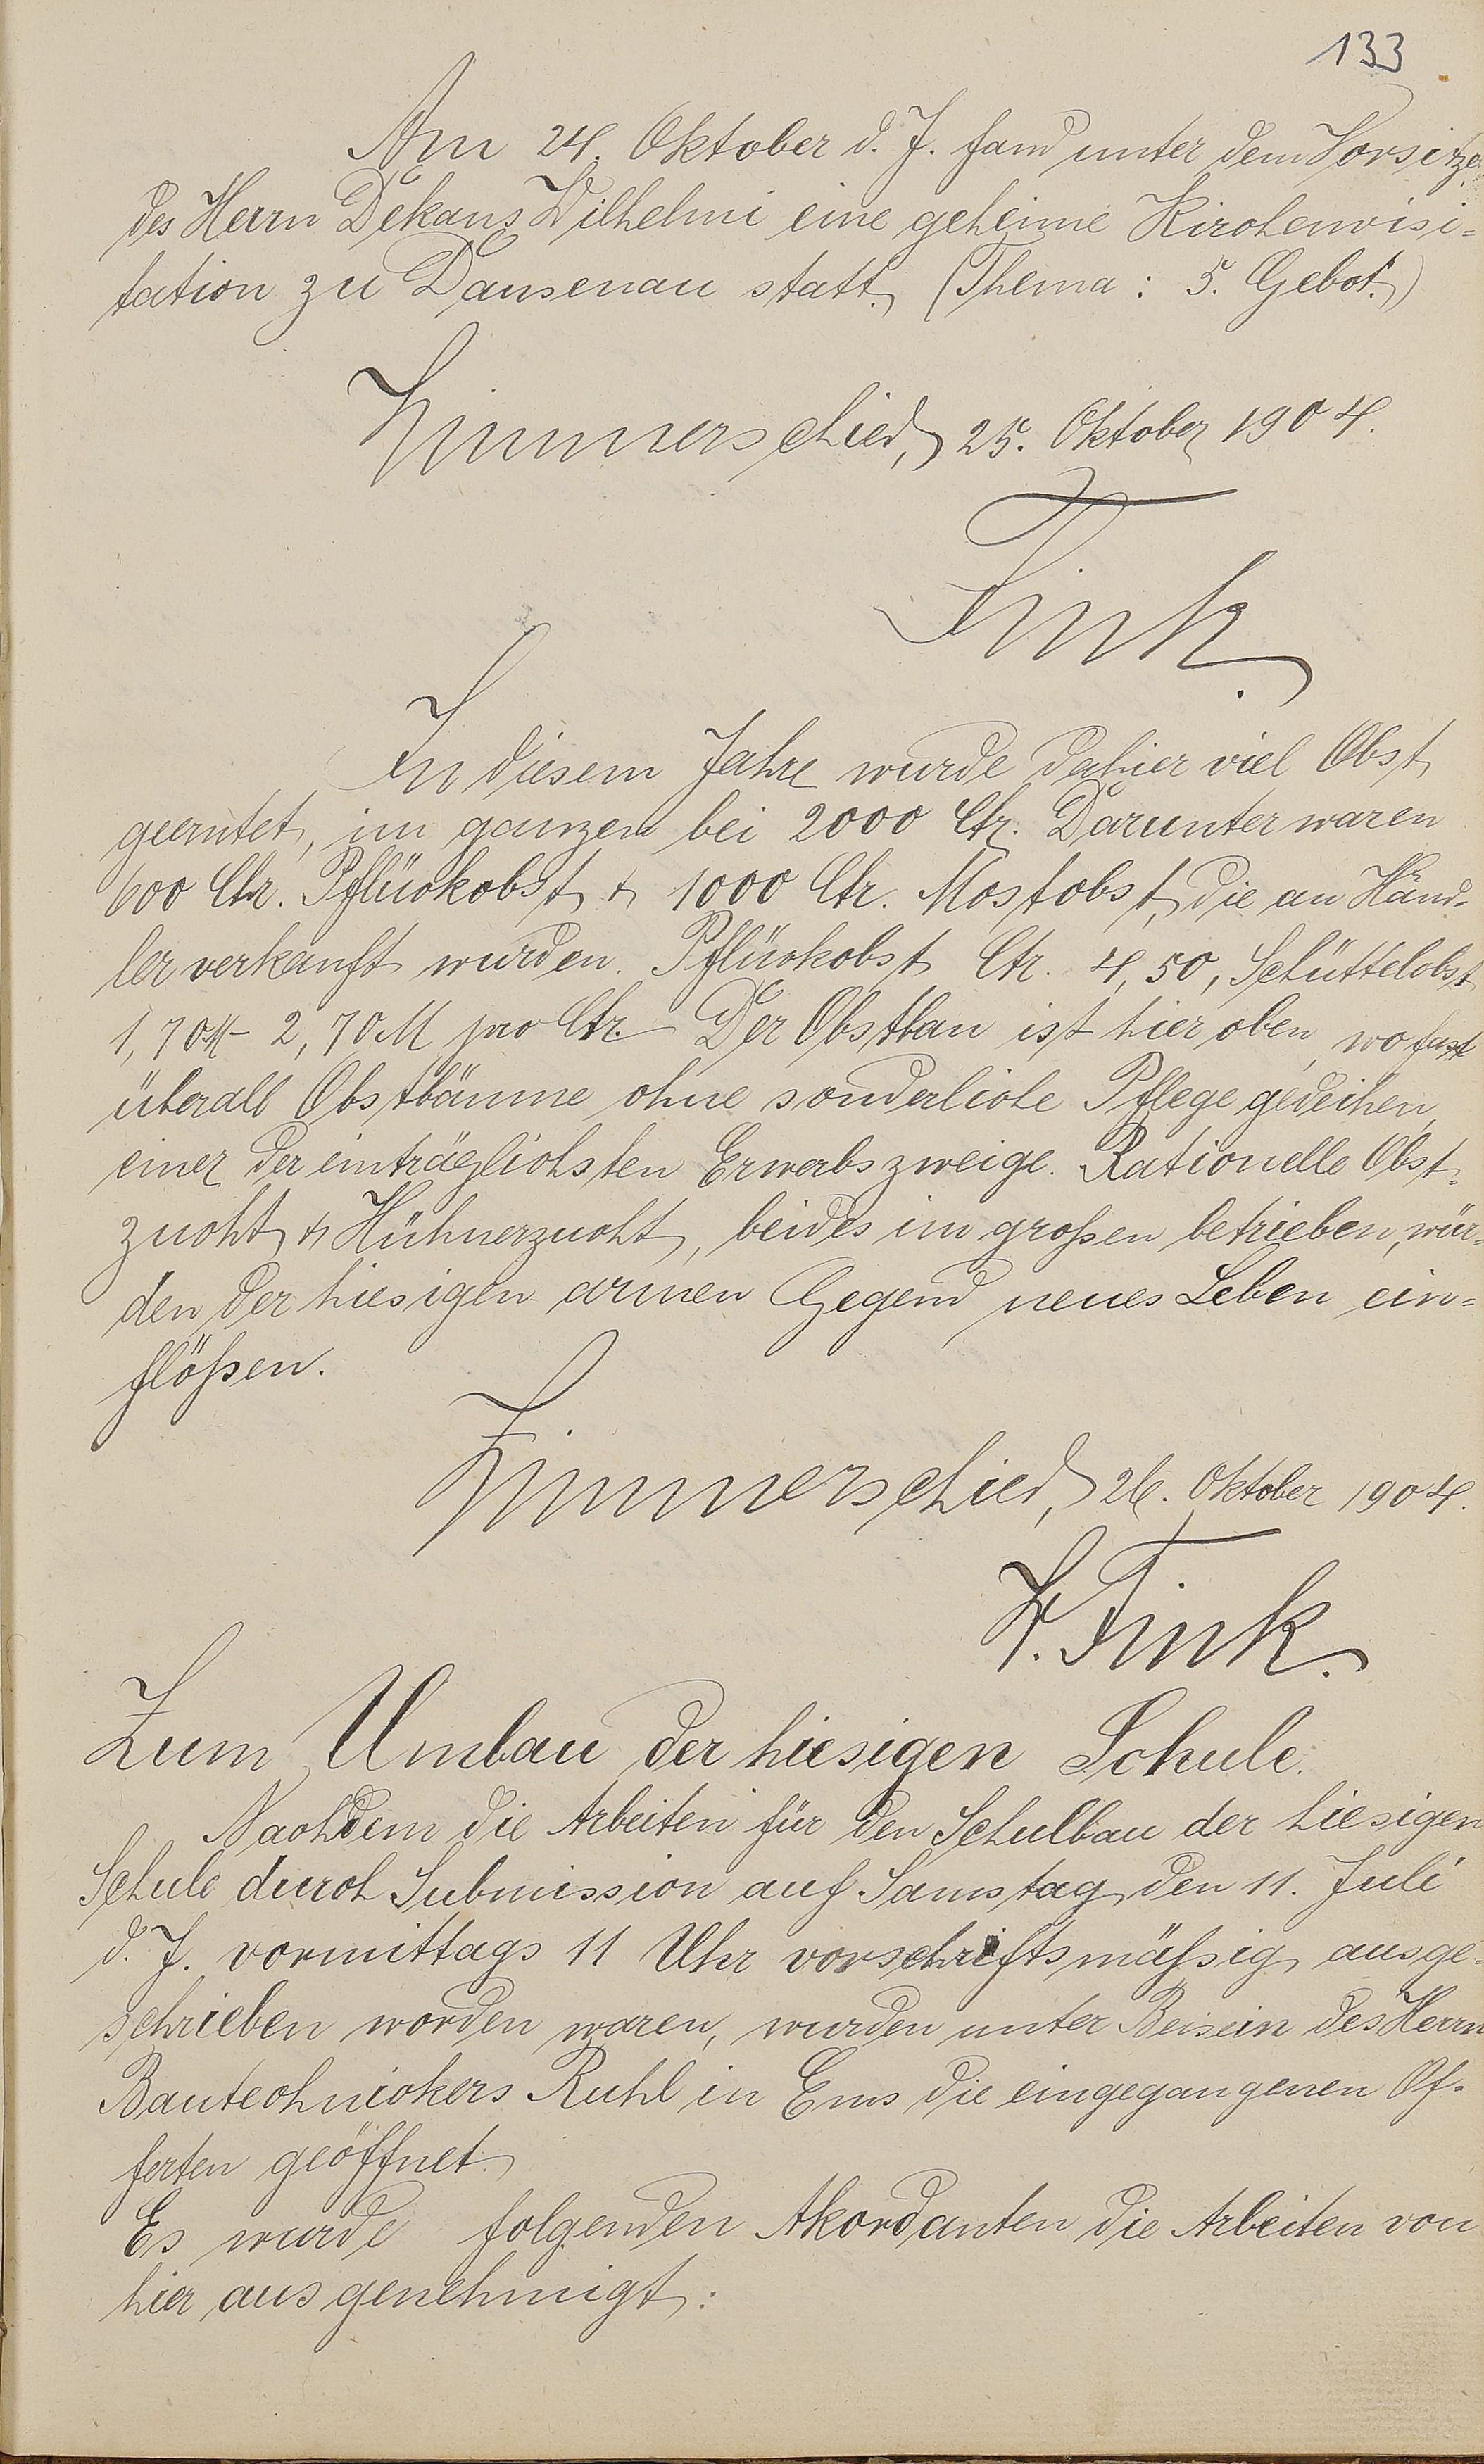 133
Am 24. Oktober d. J. fand unter dem Vorsitze
des Herrn Dekans Wilhelmi eine geheime Kirchenvisi=
tation zu Dausenau statt. (Thema: 5. Gebot.)
Zimmerschied, 25. Oktober 1904.
Fink.
In diesem Jahre wurde dahier viel Obst
geerntet, im ganzen bei 2000 Ctr. Darunter waren
600 Ctr. Pflückobst & 1000 Ctr. Mostobst, die an Händ-
ler verkauft wurden. Pflückobst Ctr. 4,50, Schüttelobst
1,70M - 2,70 M pro Ctr. Der Obstbau ist hier oben, wo fast
überall Obstbäume ohne sonderliche Pflege gedeihen,
einer der einträglichsten Erwerbszweige. Rationelle Obst-
zucht & Hühnerzucht, beides im großen betrieben, wür=
den der hiesigen armen Gegend neues Leben ein=
flößen.
Zimmerschied, 26. Oktober 1904.
Fink.
Zum Umbau der hiesigen Schule.
Nachdem die Arbeiten für den Schulbau der hiesigen
Schule durch Submission auf Samstag, den 11. Juli
d. J. vormittags 11 Uhr vorschriftsmäßig ausge=
schrieben worden waren, wurden unter Beisein des Herrn
Bautechnickers Ruhl in Ems die eingegangenen Of-
ferten geöffnet.
Es wurde folgenden Akordanten die Arbeiten von
hier aus genehmigt: